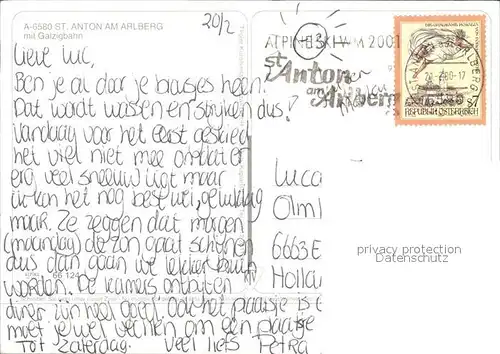 A-6580 ST. ANTON AM ARLBERG
mit Galzigbahn
20/2
Lieve Luc,
Ben je al daar je broesjes heen?
Dat wordt wassen en strijken dus!
Vandaag voor het eerst geskied
het viel niet mee omdat er
erg veel sneeuw ligt maar
ik kan het nog best wel, gelukkig
maar. Ze zeggen dat morgen
(maandag) de zon gaat schijnen
dus dan gaan we lekker bruin
worden. De kamers ontbijten
diner zijn heel goed. ook het plaatsje is
moet je wel vechten om een plaatsje
Tot zaterdag. Veel liefs Petra
ALPINE SKI WM 2001
St. Anton
am Arlberg
REPUBLIK ÖSTERREICH
S7
Luca
Olml
6663 E
Holla
privacy protection
Datenschutz
66 124